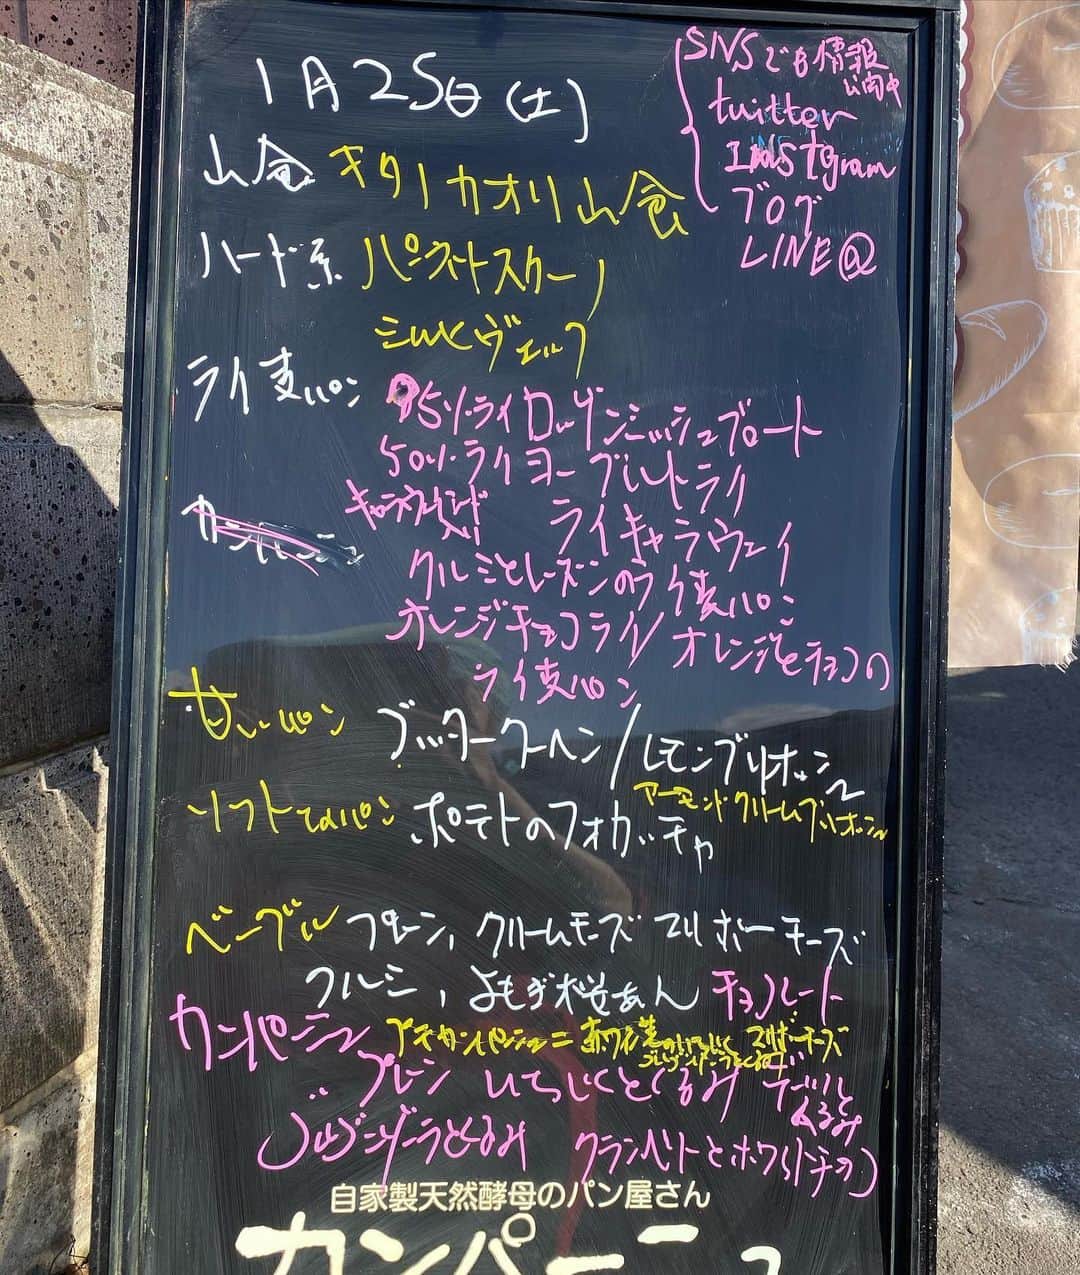 1月25日(土)
SNSでも情報
twitter
Instgram
ブログ
LINE@
山食 キタノカオリ山食
ハード系 パンストスクーノ
ミルヒヴェック
ライ麦パン
ライロッゲンミッシュブロート
ライヨーグルトライ
ライキャラウェイ
クルミとレーズンのライ麦パン
オレンジチョコライ/オレンジとチョコの
ライ麦パン
甘いパン ブッタークーヘン/レモンブリオッシュ
アーモンドクリームブリオッシュ
ソフトなパン ポテトのフォカッチャ
ベーグル プレーン、クリームチーズ マリボーチーズ
クルミ、よもぎ桜あん チョコレート
カンパーニュ プチカンパーニュ マリボーチーズ
プレーン いちじくとくるみ
くるみ
ゴルゴンゾーラとくるみ クランベリーとホワイトチョコ
自家製天然酵母のパン屋さん
カンパーニュ